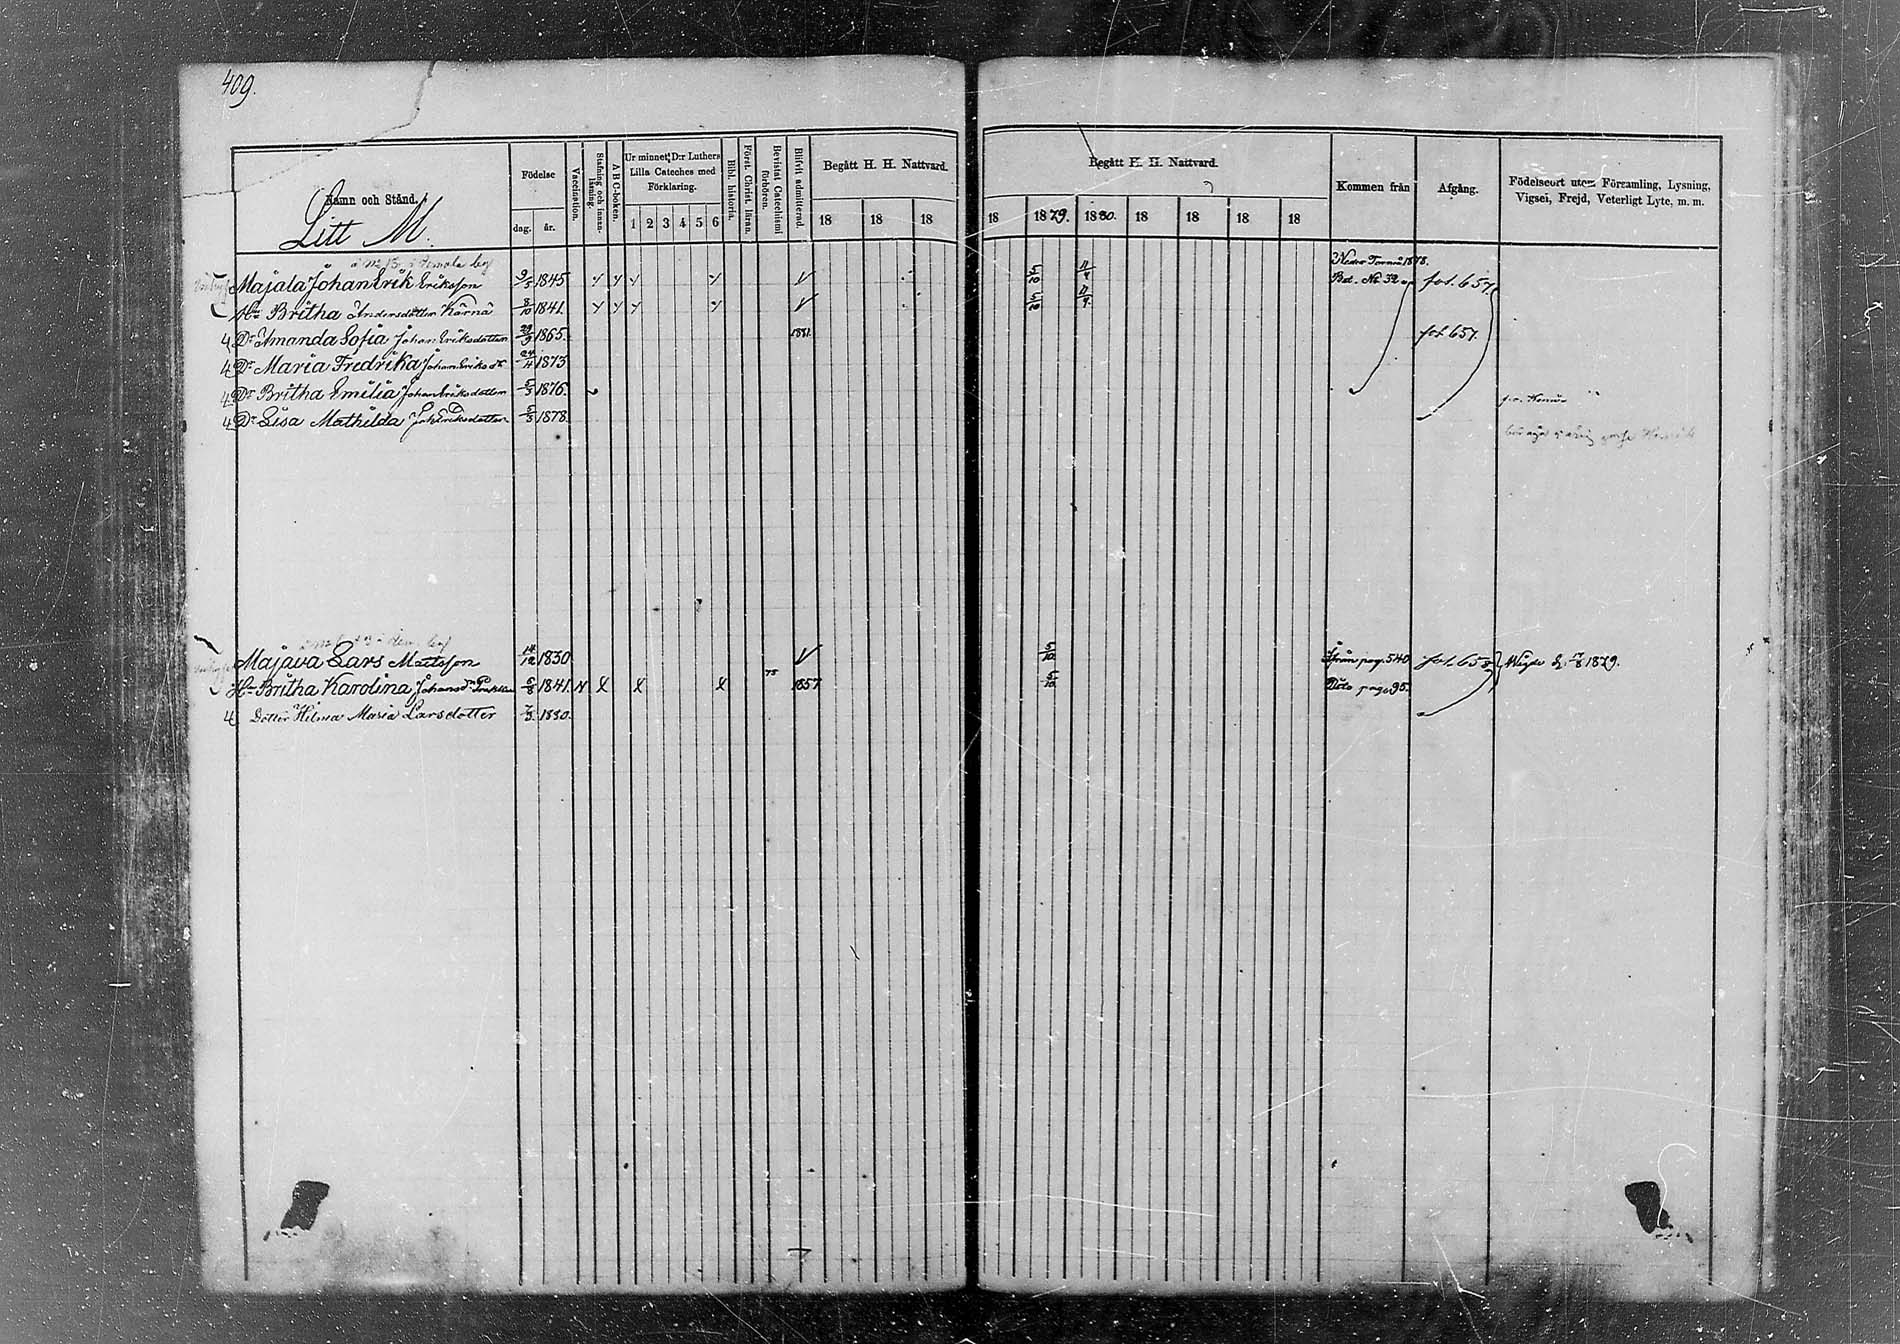 409.
Namn och Stånd.
Litt M.
Födelse
dag. år.
Vaccination.
Stafning och innanläsning.
A B C-boken.
Ur minnet D:r Luthers
Lilla Cateches med
Förklaring.
1 2 3 4 5 6
Bibl. historia.
Först. Christ. läran.
Bevistat Catechismi förhören.
Blifvit admitterad.
Begått H. H. Nattvard.
18 18 18
Begått H. H. Nattvard.
18 1879. 1880. 18 18 18 18
Kommen från
Afgång.
Födelseort utom Församling, Lysning,
Vigsel, Frejd, Veterligt Lyte, m. m.
Nedro Torneå 1878.
Majala Johan Erik Eriksson 9/5 1845 5/10 11/4 Bet. No 32 fol. 657.
Hu Britha Andersdotter Kärnä 8/10 1841. 5/10 11/4
4 Dr Amanda Sofia Johan Eriksdotter 1865. 1881. fol. 657.
4 Dr Maria Fredrika Johan Eriksdr 24/4 1873
4 Dr Britha Emilia Johan Eriksdotter 5/3 1876.
4 Dr Lisa Mathilda Joh. Eriksdotter 5/3 1878.
Majava Lars Mattsson 14/12 1830 5/10 Från pag. 540 fol. 658 Wigde d. 17/8 1879.
Hu Britha Karolina Johansdr 6/8 1841. 1857 5/10 Dito page 95.
4 Dotter Hilma Maria Larsdotter 7/3 1880.